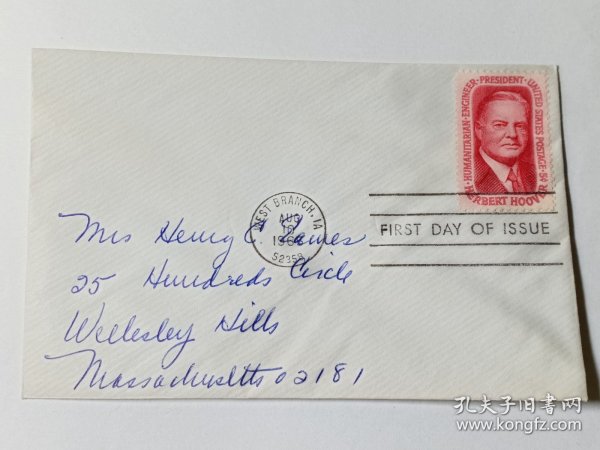 HUMANITARIAN·ENGINEER·PRESIDENT·UNITED STATES POSTAGE·5¢
HERBERT HOOVER
WEST BRANCH, IA
AUG
10
52358
FIRST DAY OF ISSUE
Mrs Henry C.
25 Hundreds Circle
Wellesley Hills
Massachusetts 02181
孔夫子旧书网
www.kongfz.com